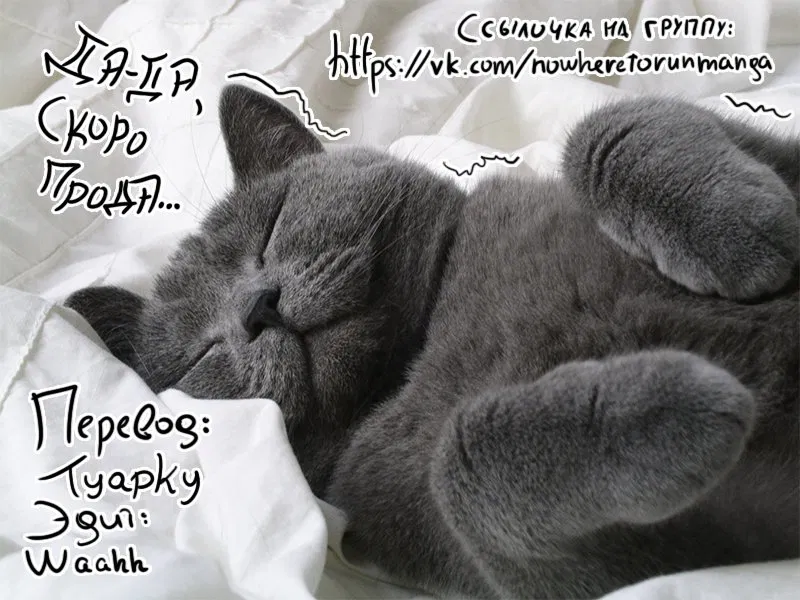 Да-да,
скоро
прода...
Ссылочка на группу:
https://vk.com/nowheretorunmanga
Перевод:
Туарку
Эдит:
Waahh